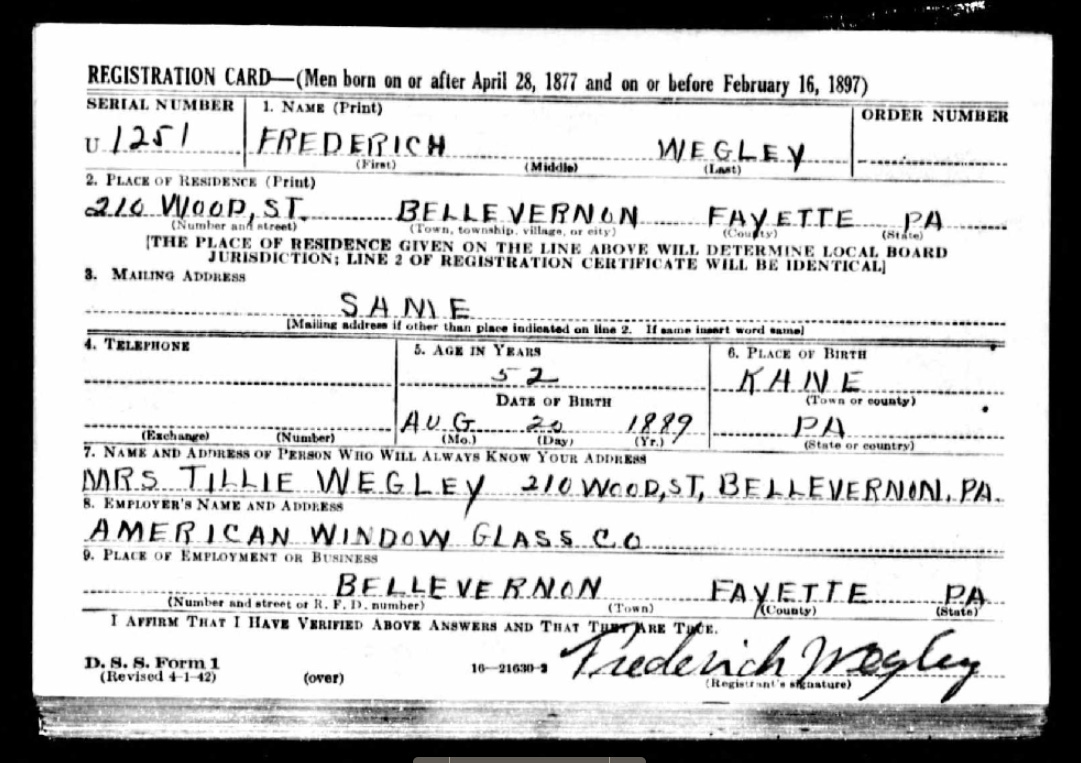 REGISTRATION CARD—(Men born on or after April 28, 1877 and on or before February 16, 1897)
SERIAL NUMBER 1. NAME (Print) ORDER NUMBER
U 1251 FREDERICH WEGLEY
(First) (Middle) (Last)
2. PLACE OF RESIDENCE (Print)
210 WOOD, ST. BELLEVERNON FAYETTE PA
(Number and street) (Town, township, village, or city) (County) (State)
[THE PLACE OF RESIDENCE GIVEN ON THE LINE ABOVE WILL DETERMINE LOCAL BOARD
JURISDICTION; LINE 2 OF REGISTRATION CERTIFICATE WILL BE IDENTICAL]
3. MAILING ADDRESS
SAME
[Mailing address if other than place indicated on line 2. If same insert word same]
4. TELEPHONE 5. AGE IN YEARS 6. PLACE OF BIRTH
52 KANE
DATE OF BIRTH (Town or county)
AUG 20 1889 PA
(Exchange) (Number) (Mo.) (Day) (Yr.) (State or country)
7. NAME AND ADDRESS OF PERSON WHO WILL ALWAYS KNOW YOUR ADDRESS
MRS TILLIE WEGLEY 210 WOOD, ST, BELLEVERNON. PA.
8. EMPLOYER'S NAME AND ADDRESS
AMERICAN WINDOW GLASS CO
9. PLACE OF EMPLOYMENT OR BUSINESS
BELLEVERNON FAYETTE PA
(Number and street or R. F. D. number) (Town) (County) (State)
I AFFIRM THAT I HAVE VERIFIED ABOVE ANSWERS AND THAT THEY ARE TRUE.
D. S. S. Form 1 16—21630-2 Frederich Wegley
(Revised 4-1-42) (over) (Registrant's signature)